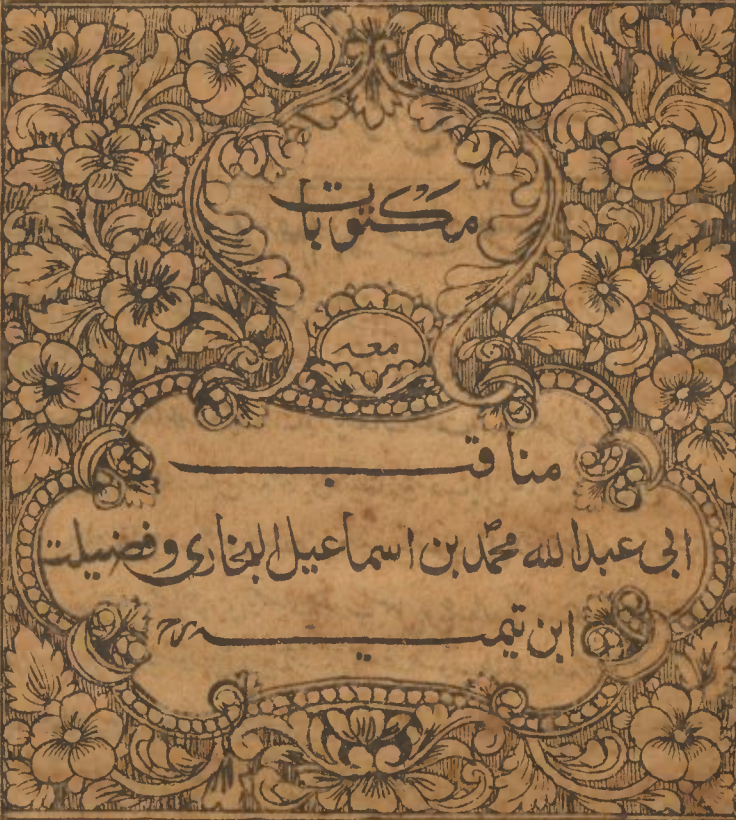 مکتوبات
معہ
مناقب
ابی عبداللہ محمد بن اسماعیل البخاری و فضیلت
ابن تیمیہ رح